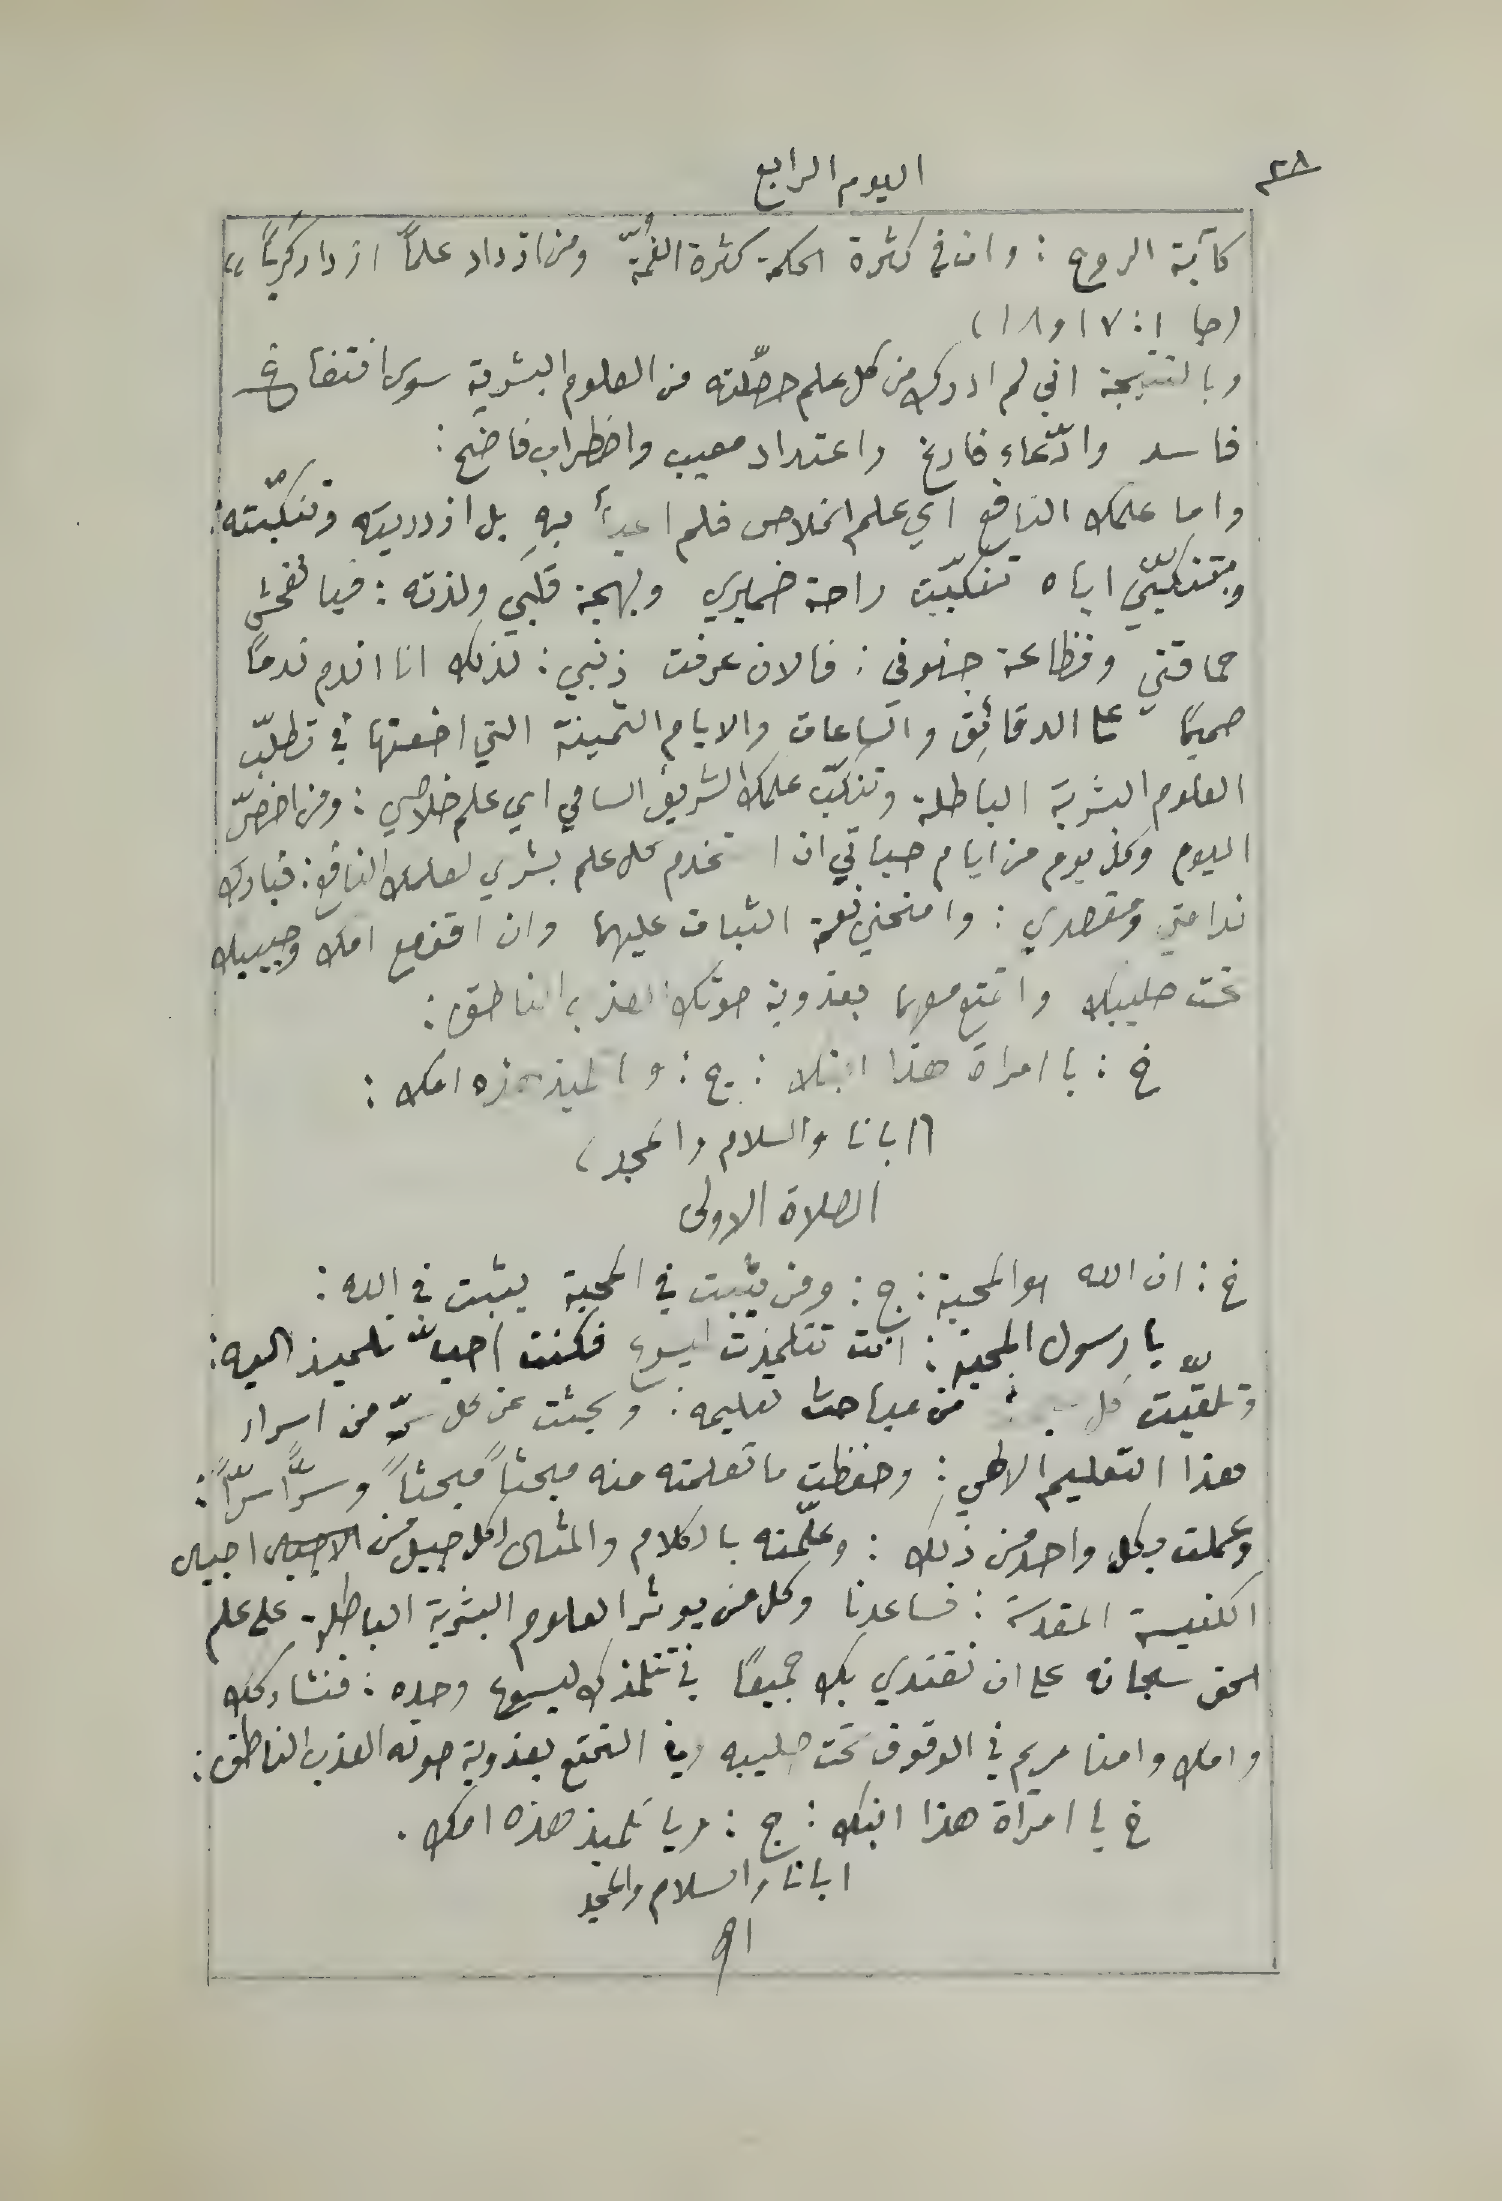 ٣٨
اليوم الرابع
كآبة الروح : وان في كثرة الحكمة كثرة الغمّة ومن ازداد علماً ازداد كرباً »
(جا ١ : ١٧ و ١٨)
وبالنتيجة اني لم ادرك من كل علم حصّلته من العلوم البشرية سوى انتفاخ
فاسد وادّعاء فارغ واعتداد معيب واضطراب فاضح :
واما علمك النافع اي علم الخلاص فلم اعبأ بهِ بل ازدريته وتنكّبته :
وبتنكّبي اياه تنكّبت راحة ضميري وبهجة قلبي ولذته : فيا لفحش
حماقتي وفظاعة جنوني : فالان عرفت ذنبي : لذلك انا اندم ندماً
صميماً على الدقائق والساعات والايام الثمينة التي اضعتها في تطلّب
العلوم البشرية الباطلة وتنكّب علمك الشريف السامي اي علم خلاصي :
اليوم وكل يوم من ايام حياتي ان استخدم كل علم بشري لعلمك النافع : فبارك
ندامتي ومقصدي : وامنحني نعمة الثبات عليهما وان اقف مع امك وحبيبك
تحت صليبك واتمتع معهما بعذوبة صوتك العذب الناطق :
خ : يا امراة هذا ابنك : ج : ويا تلميذ هذه امك :
(ابانا والسلام والمجد)
الصلاة الاولى
خ : ان الله هو المحبة : ج : ومن يثبت في المحبة يثبت في الله :
يا رسول المحبة : انت تتلمذت ليسوع فكنت احبّ تلميذ اليه :
وتلقّيت كل من مباحث تعليمه : وبحثت عن كل سرّ من اسرار
هذا التعليم الالهي : وحفظت ما تعلمته منه مبحثاً مبحثاً وسرّاً سرّاً :
وعملت بكل واحد من ذلك : وعلّمته بالكلام والمثال لكل جيل من الاجيال اجيال
الكنيسة المقدسة : فساعدنا وكل من يوثر العلوم البشرية الباطلة على علم
الحق سبحانه على ان نقتدي بك جميعاً في تتلمذك ليسوع وحده : فنشاركك
وامك وامنا مريم في الوقوف تحت صليبه وفي التمتع بعذوبة صوته العذب الناطق :
خ يا امرأة هذا ابنك : ج : ويا تلميذ هذه امك .
ابانا والسلام والمجد